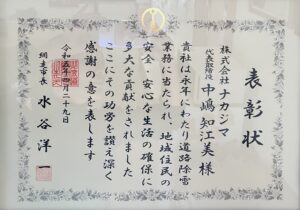 表彰状
株式会社ナカジマ
代表取締役 中嶋知江美様
貴社は永年にわたり道路除雪
業務に当たられ、地域住民の
安全・安心な生活の確保に
多大な貢献をされました
ここにその功労を讃え深く
感謝の意を表します
令和五年四月二十九日
網走市長 水谷洋一